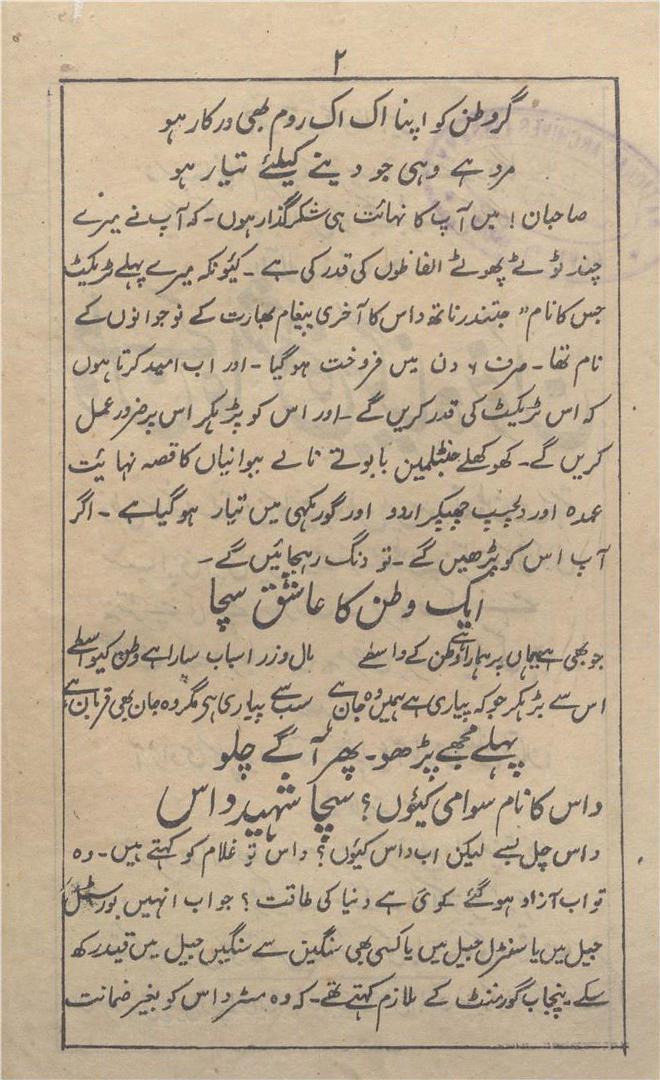 ۲
گر وطن کو اپنا اک اک روم بھی درکار ہو
مرد ہے وہی جو دینے کیلئے تیار ہو
صاحبان! میں آپ کا نہائت ہی شکرگذار ہوں۔ کہ آپ نے میرے
چند ٹوٹے پھوٹے الفاظوں کی قدر کی ہے۔ کیونکہ میرے پہلے ٹریکٹ
جس کا نام "جتندر ناتھ داس کا آخری پیغام بھارت کے نوجوانوں کے
نام تھا۔ صرف ۶ دن میں فروخت ہو گیا۔ اور اب امید کرتا ہوں
کہ اس ٹریکٹ کی قدر کریں گے۔ اور اس کو پڑہکر اس پر ضرور عمل
کریں گے۔ کھوکھلے جنٹلمین بابو تے نالے بیوانیاں کا قصہ نہائیت
عمدہ اور دلچسپ چھپکر اردو اور گورمکہی میں تیار ہو گیا ہے۔ اگر
آپ اس کو پڑھیں گے۔ تو دنگ رہجائیں گے۔
ایک وطن کا عاشق سچا
جو بھی ہے یہاں پر ہمارا اپنے وطن کے واسطے مال و زر اسباب سارا ہے وطن کیواسطے
اس سے بڑہکر جو کہ پیاری ہے ہمیں وہ جان ہے سب سے پیاری ہے مگر وہ جان بھی قربان ہے
پہلے مجھے پڑھو۔ پھر آگے چلو
داس کا نام سوامی کیوں؟ سچا شہید داس
داس چل بسے لیکن اب داس کیوں؟ داس تو غلام کو کہتے ہیں۔ وہ
تو اب آزاد ہو گئے کوئی ہے دنیا کی طاقت؟ جو اب انہیں بورسٹل
جیل میں یا سنٹرل جیل میں یا کسی بھی سنگین سے سنگیں جیل میں قید رکھ
سکے۔ پنجاب گورمنٹ کے ملازم کہتے تھے۔ کہ وہ مسٹر داس کو بغیر ضمانت